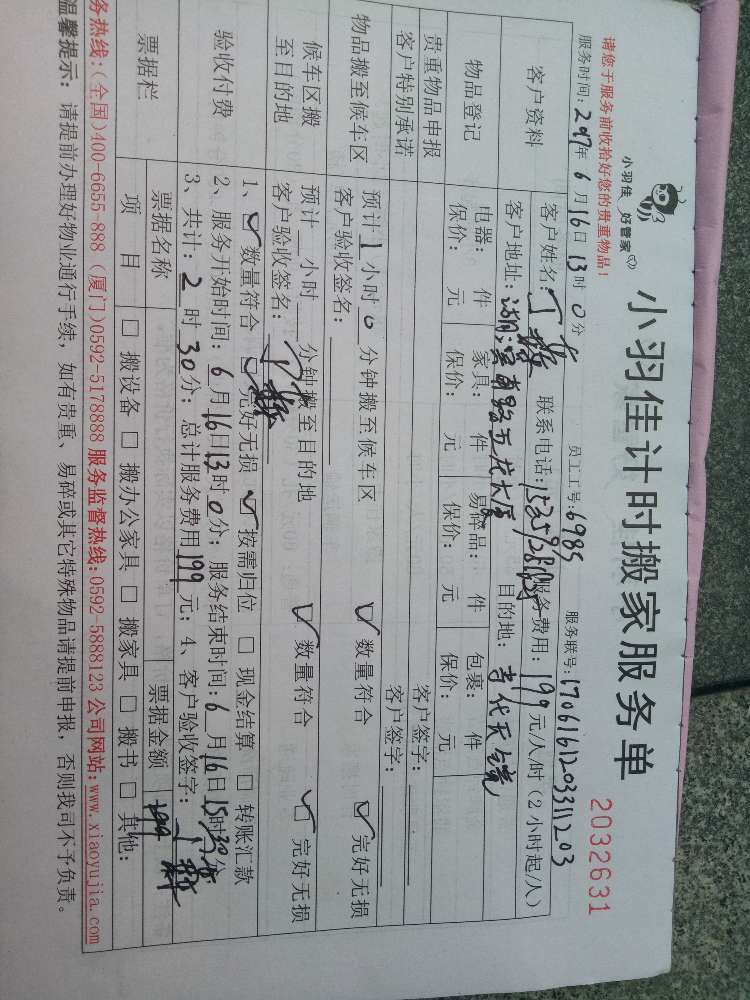 小羽佳 好管家
小羽佳计时搬家服务单
2032631
请您于服务前收拾好您的贵重物品！
服务时间：2017年6月16日13时0分 员工工号：6985 服务联号：1706161203311203
客户资料 客户姓名： 联系电话： 服务费用：199元/人/时（2小时起/人）
客户地址：湖滨南路五龙大厦 目的地：
物品登记 电器： 件 家具： 件 易碎品： 件 包裹： 件
保价： 元 保价： 元 保价： 元 保价： 元
贵重物品申报 客户签字：
客户特别承诺 客户签字：
物品搬至候车区 预计1小时0分钟搬至候车区 ☑数量符合 ☑完好无损
客户验收签名：
候车区搬至目的地 预计 小时 分钟搬至目的地 ☑数量符合 ☑完好无损
客户验收签名：
验收付费 1、☑数量符合 ☑完好无损 ☑按需归位 □现金结算 □转账汇款
2、服务开始时间：6月16日13时0分；服务结束时间：6月16日15时30分
3、共计：2时30分；总计服务费用199元；4、客户验收签字：
票据栏 票据名称 票据金额 199
项 目 □搬设备 □搬办公家具 □搬家具 □搬书 □其他：
务热线：（全国）400-6655-888（厦门）0592-5178888 服务监督热线：0592-5888123 公司网站：www.xiaoyujia.com
温馨提示：请提前办理好物业通行手续，如有贵重、易碎或其它特殊物品请提前申报，否则我司不予负责。